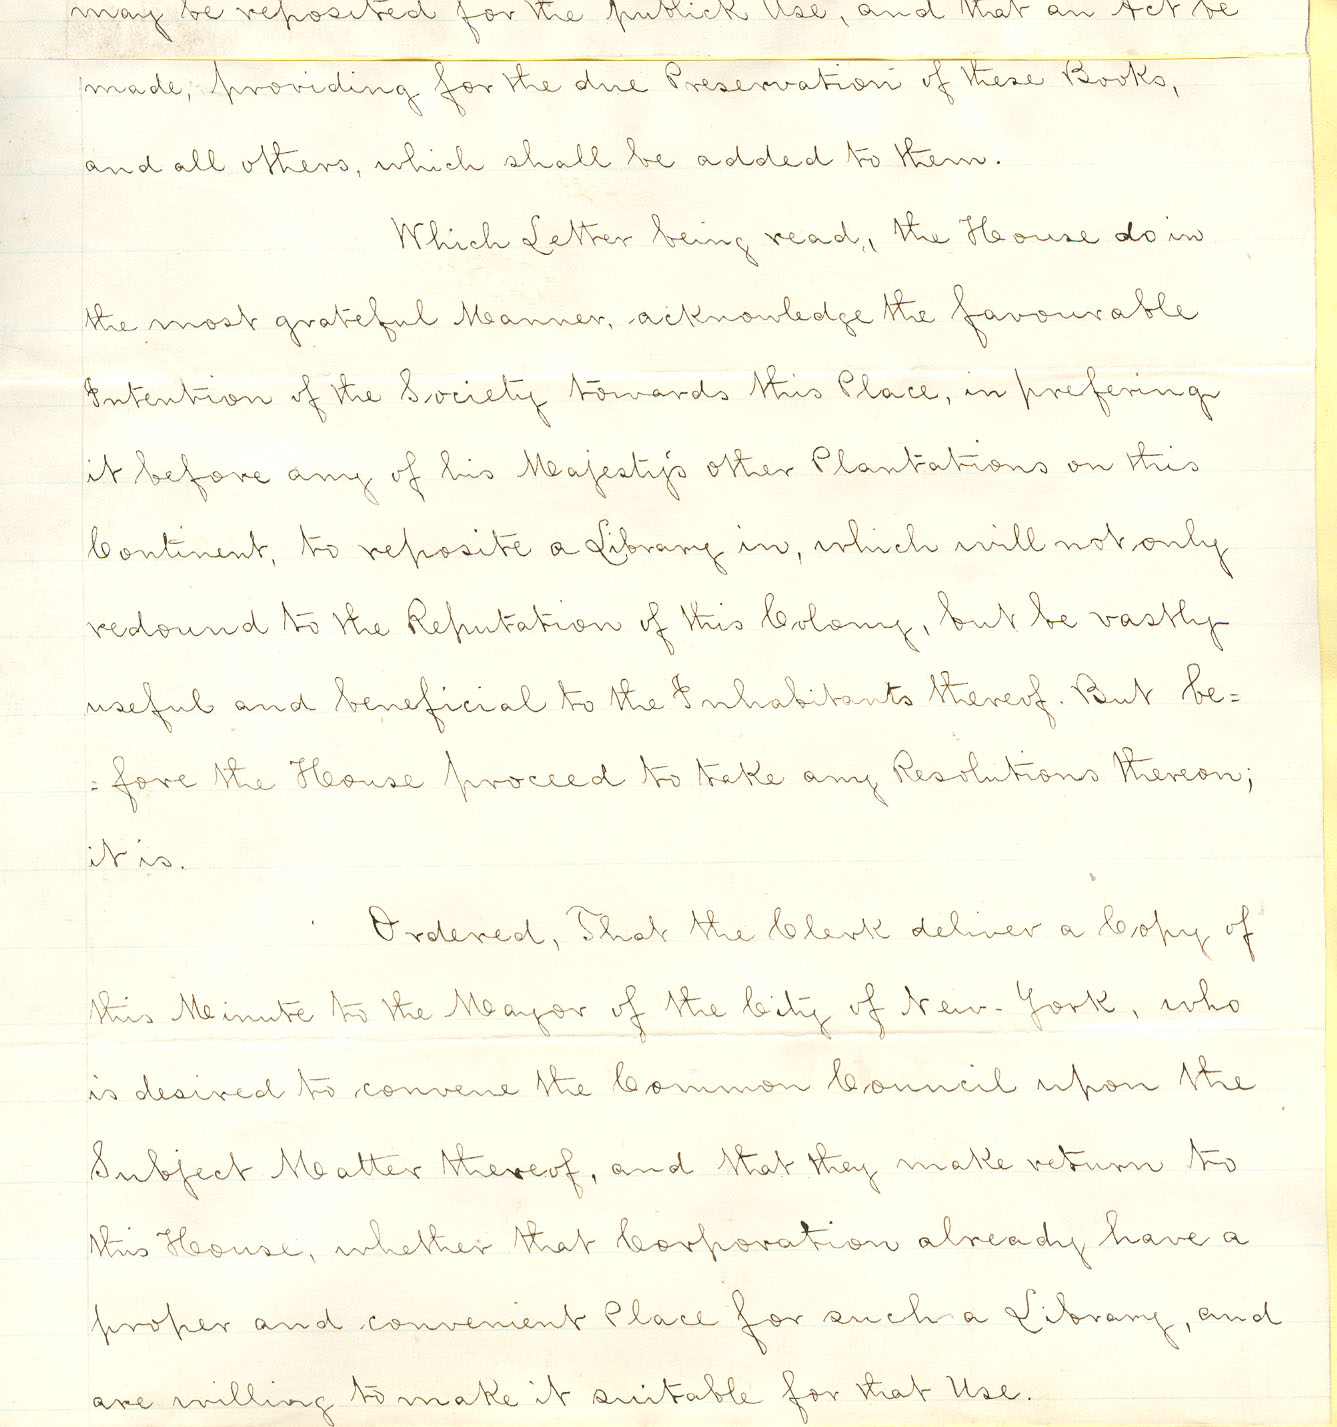 may be reposited for the publick Use, and that an Act be
made, providing for the due Preservation of these Books,
and all others, which shall be added to them.
Which Letter being read, the House do in
the most grateful Manner, acknowledge the favourable
Intention of the Society towards this Place, in prefering
it before any of his Majesty's other Plantations on this
Continent, to reposite a Library in, which will not only
redound to the Reputation of this Colony, but be vastly
useful and beneficial to the Inhabitants thereof. But be=
=fore the House proceed to take any Resolutions thereon;
it is.
Ordered, That the Clerk deliver a Copy of
this Minute to the Mayor of the City of New-York, who
is desired to convene the Common Council upon the
Subject Matter thereof, and that they make return to
this House, whether that Corporation already have a
proper and convenient Place for such a Library, and
are willing to make it suitable for that Use.